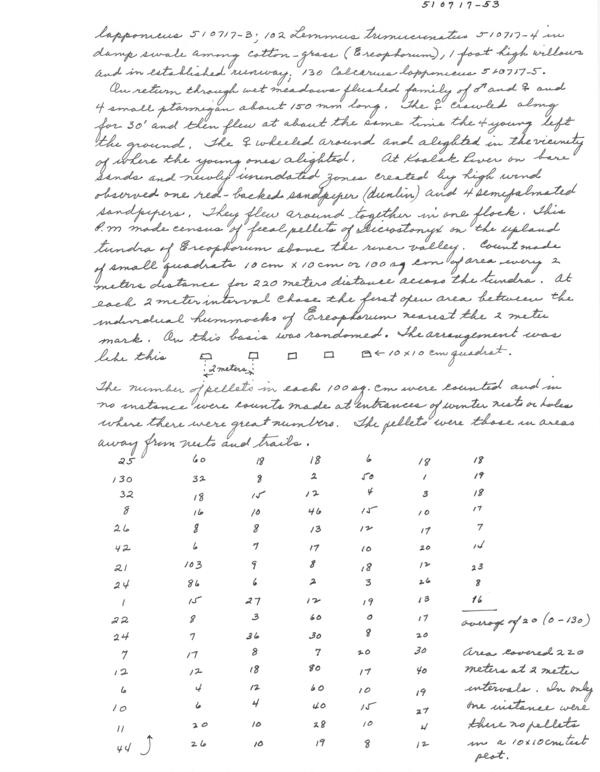 510717-53
lapponicus 510717-3; 102 Lemmus trimucronatus 510717-4 in
damp swale among cotton-grass (Ereophorum), 1 foot high willows
and in established runway; 130 Calcarius lapponicus 510717-5.
On return through wet meadows flushed family of ♂ and ♀ and
4 small ptarmigan about 150 mm long. The ♀ crawled along
for 30' and then flew at about the same time the 4 young left
the ground. The ♀ wheeled around and alighted in the vicinity
of where the young ones alighted. At Kaolak River on bare
sands and newly inundated zones created by high wind
observed one red-backed sandpiper (dunlin) and 4 semipalmated
sandpipers. They flew around together in one flock. This
P.M made census of fecal pellets of Dicrostonyx on the upland
tundra of Ereophorum above the river valley. Count made
of small quadrats 10 cm x 10 cm or 100 sq cm of area every 2
meters distance for 220 meters distance across the tundra. At
each 2 meter interval chose the first open area between the
individual hummocks of Ereophorum nearest the 2 meter
mark. On this basis was randomed. The arrangement was
like this ← 10 x 10 cm quadrat.
2 meters
The number of pellets in each 100 sq. cm were counted and in
no instance were counts made at entrances of winter nests or holes
where there were great numbers. The pellets were those in areas
away from nests and trails.
25 60 18 18 6 18 18
130 32 8 2 50 1 19
32 18 15 12 4 3 18
8 16 10 46 15 10 17
26 8 8 13 12 17 7
42 6 7 17 10 20 14
21 103 9 8 18 12 23
24 86 6 2 3 26 8
1 15 27 12 19 13 16
22 8 3 60 0 17 average of 20 (0-130)
24 7 36 30 8 20
7 17 8 7 20 30 Area covered 220
12 12 18 80 17 40 meters at 2 meter
6 4 12 60 10 19 intervals. In only
10 6 4 40 15 27 one instance were
11 20 10 28 10 4 there no pellets
44 26 10 19 8 12 in a 10x10 cm test
plot.